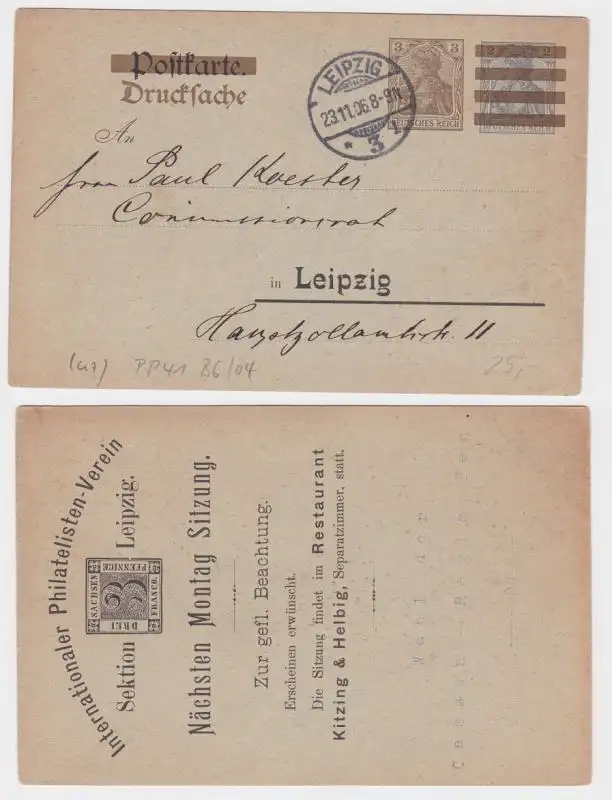 Postkarte.
Drucksache
LEIPZIG
23.11.06.8-9N.
* 3 *
3 3
DEUTSCHES REICH
2 2
DEUTSCHES REICH
An
Paul Koester
Commissionsrat
in Leipzig
Hauptzollamtstr. 11
PP41 B6/04
25,-
Internationaler Philatelisten-Verein
Sektion Leipzig.
SACHSEN
PFENNIGE
3
DREI
FRANCO.
Nächsten Montag Sitzung.
Zur gefl. Beachtung.
Erscheinen erwünscht.
Die Sitzung findet im Restaurant
Kitzing & Helbig, Separatzimmer, statt.
Wahl der